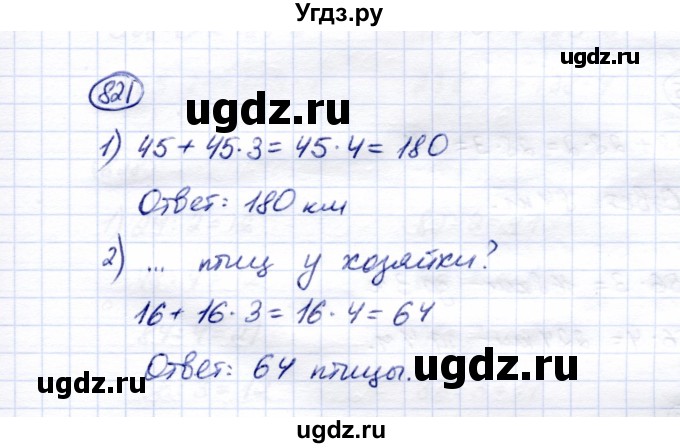 Угдз.ру
ugdz.ru
821
ugdz.ru
1) 45 + 45·3 = 45·4 = 180
Ответ: 180 км
ugdz.ru
ugdz.ru
2) ... птиц у хозяйки?
16 + 16·3 = 16·4 = 64
Ответ: 64 птицы.
ugdz.ru
ugdz.ru